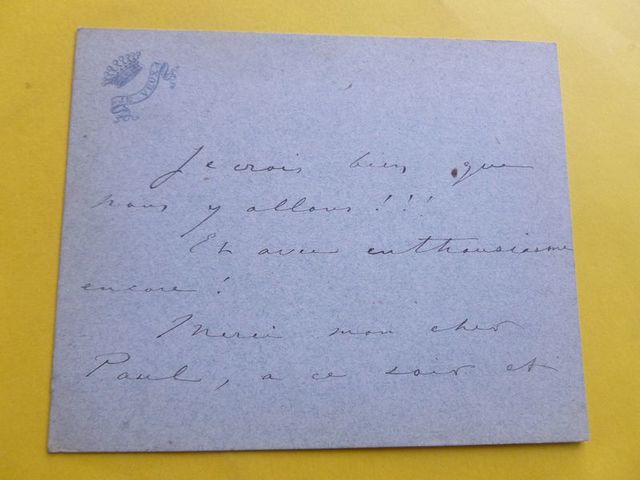 JE VEUX
Je crois bien que
nous y allons !!!
Et avec enthousiasme
encore !
Merci mon cher
Paul, a ce soir et